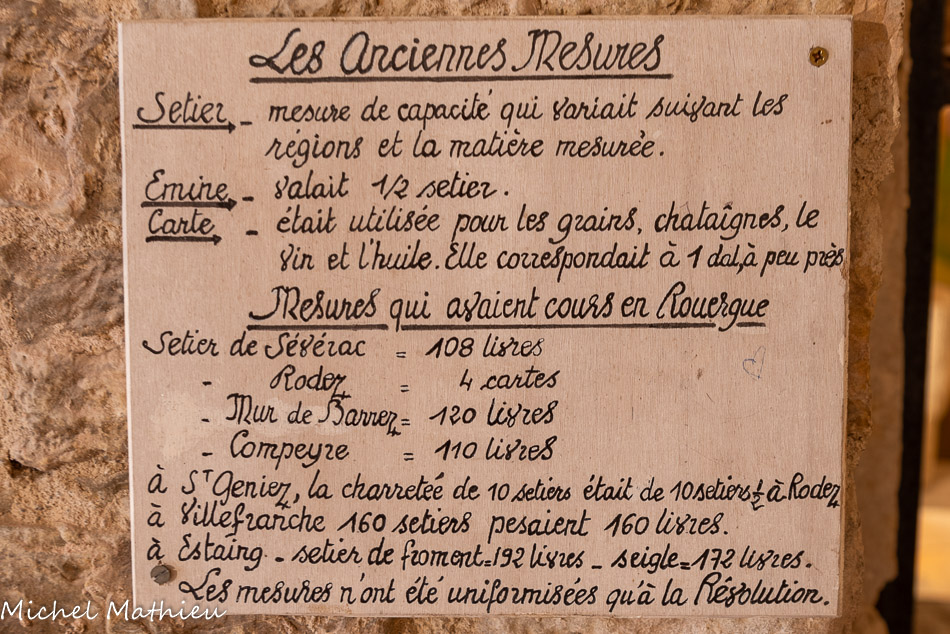 Les Anciennes Mesures
Setier - mesure de capacité qui variait suivant les
régions et la matière mesurée.
Emine - valait 1/2 setier.
Carte - était utilisée pour les grains, chataîgnes, le
vin et l'huile. Elle correspondait à 1 dal, à peu près
Mesures qui avaient cours en Rouergue
Setier de Sévérac = 108 livres
- Rodez = 4 cartes
- Mur de Barrez = 120 livres
- Compeyre = 110 livres
à St Geniez, la charretée de 10 setiers était de 10 setiers 1/2 à Rodez
à Villefranche 160 setiers pesaient 160 livres.
à Estaing - setier de froment = 192 livres - seigle = 172 livres.
Les mesures n'ont été uniformisées qu'à la Révolution.
Michel Mathieu